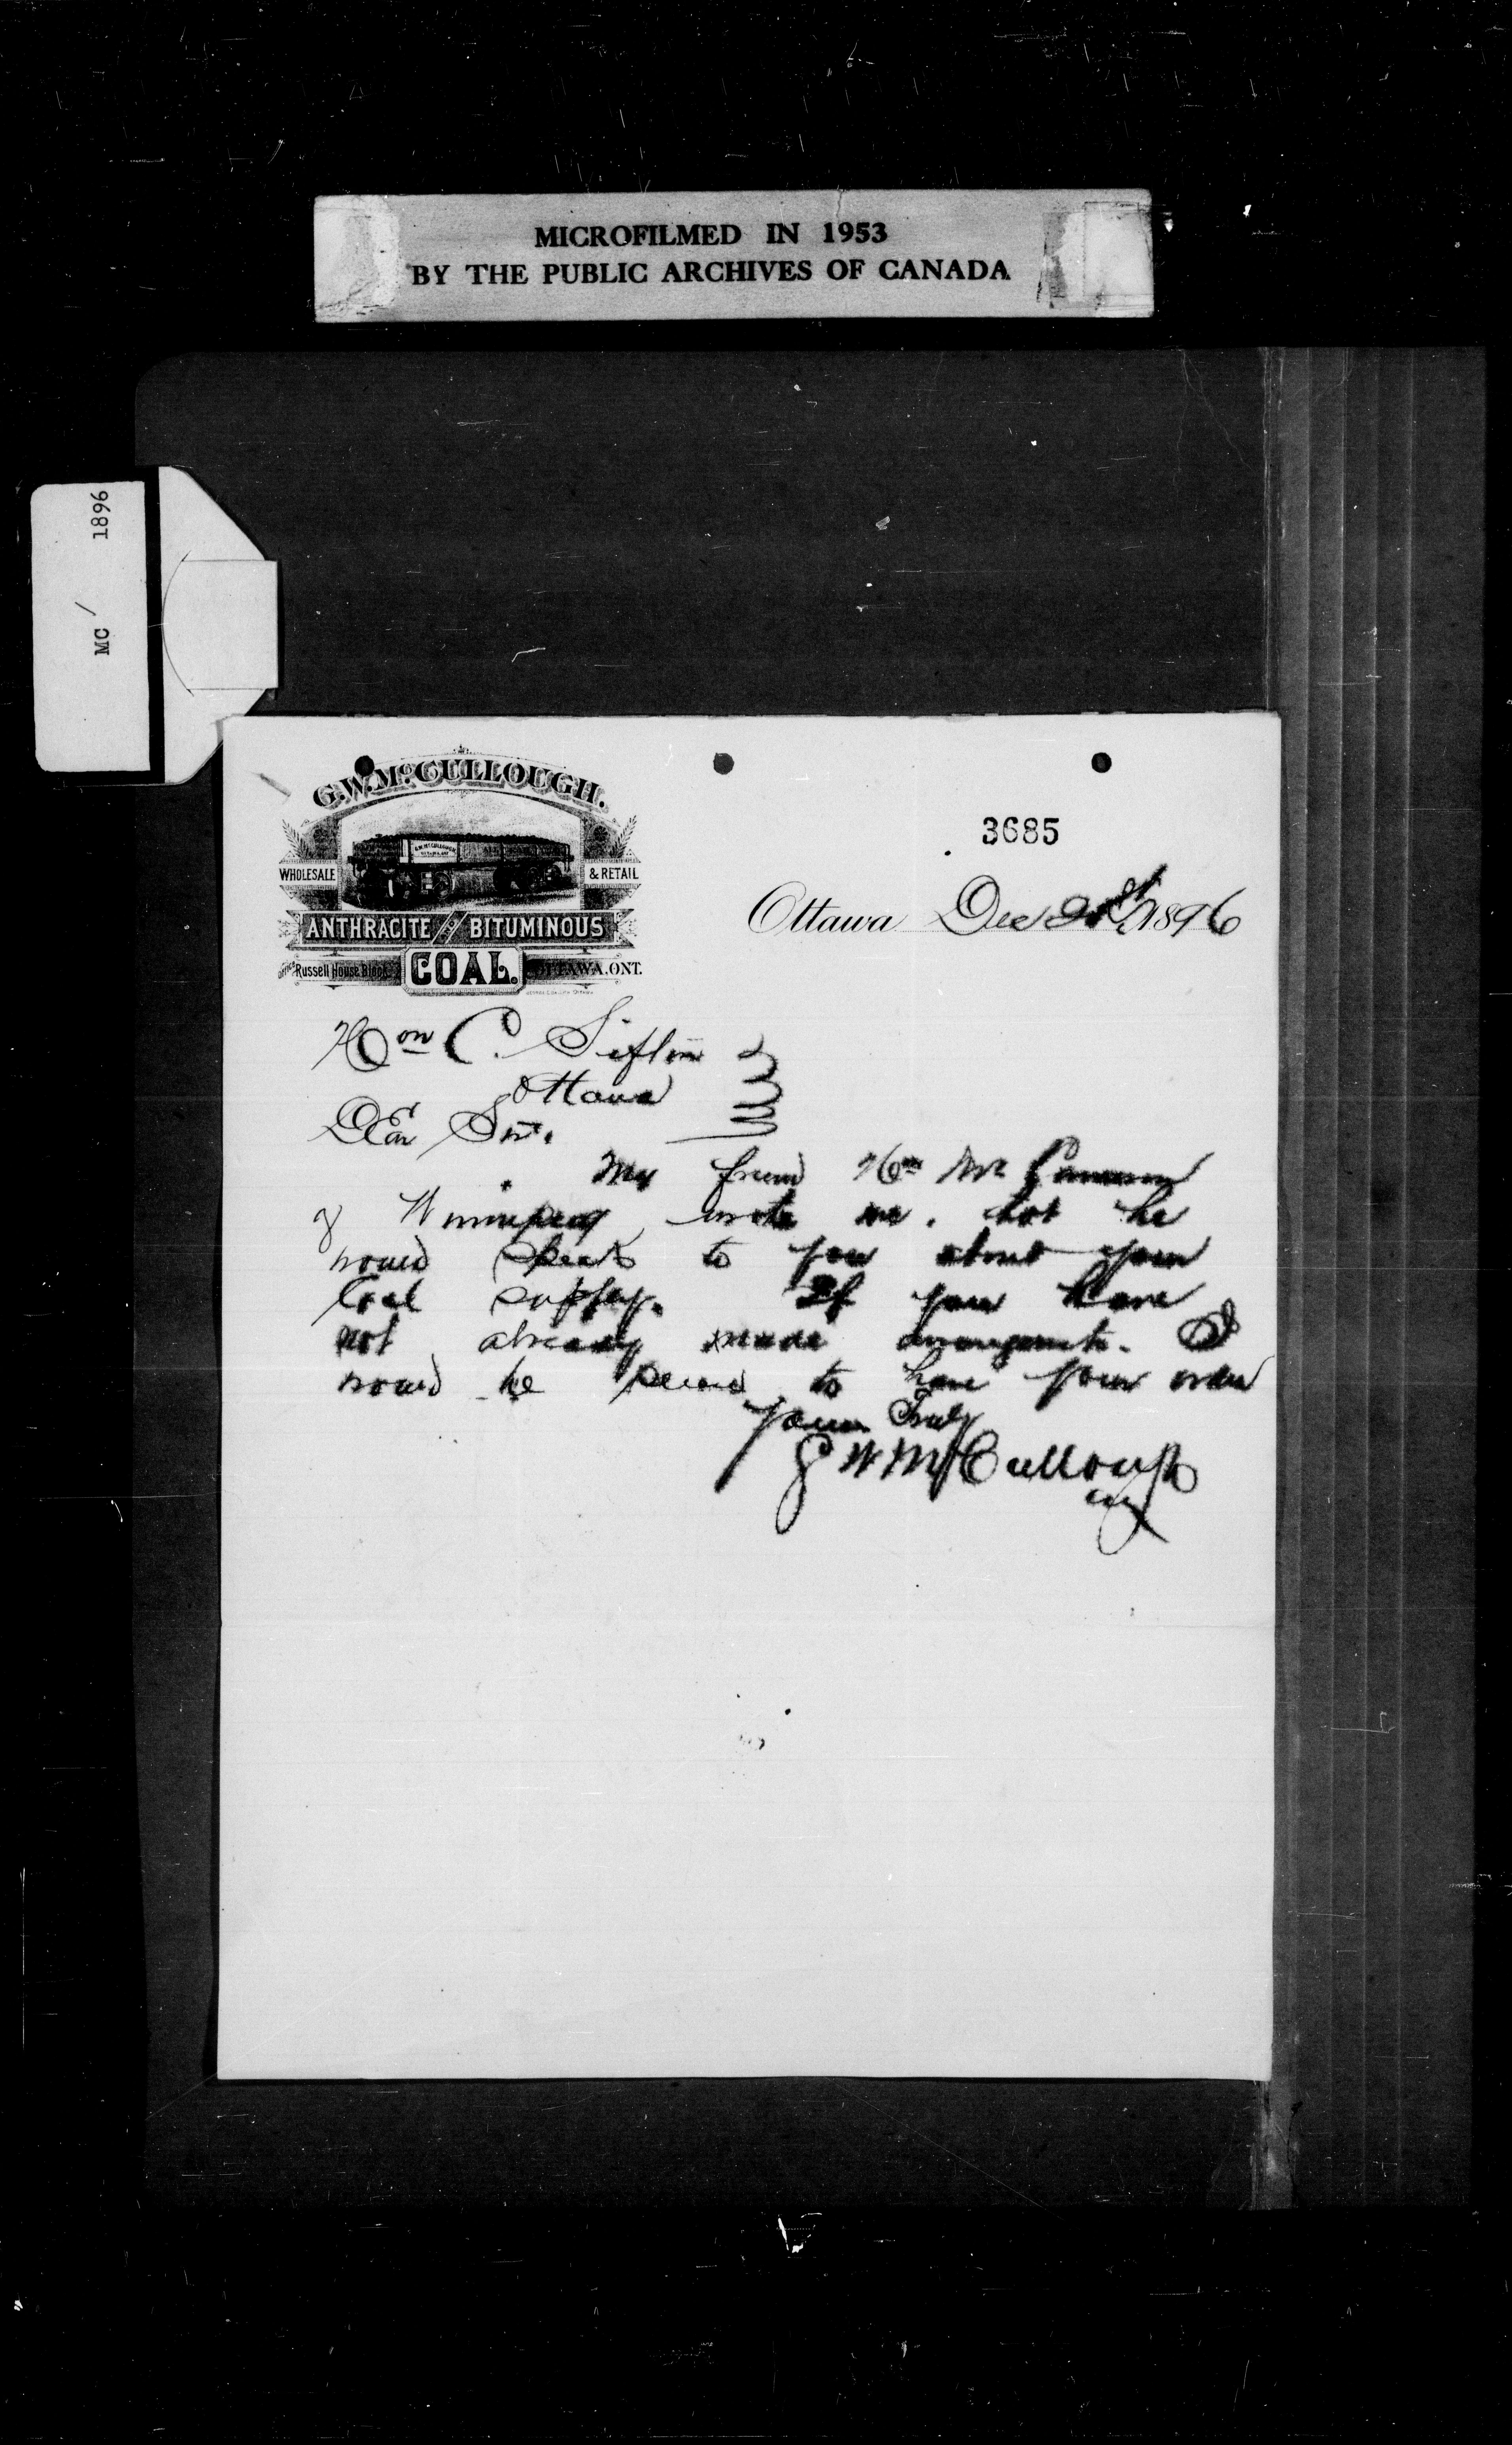 MICROFILMED IN 1953
BY THE PUBLIC ARCHIVES OF CANADA
MC / 1896
G.W. McCULLOUGH.
WHOLESALE & RETAIL
ANTHRACITE AND BITUMINOUS
Office Russell House Block COAL. OTTAWA, ONT.
3685
Ottawa Dec 1896
Hon C. Sifton
Ottawa
Dear Sir.
My friend Hon Mr Cameron
of Winnipeg wrote me. that he
would speak to you about your
Coal supply. If you have
not already made arrangements. I
would be pleased to have your order
Yours Truly
G W McCullough